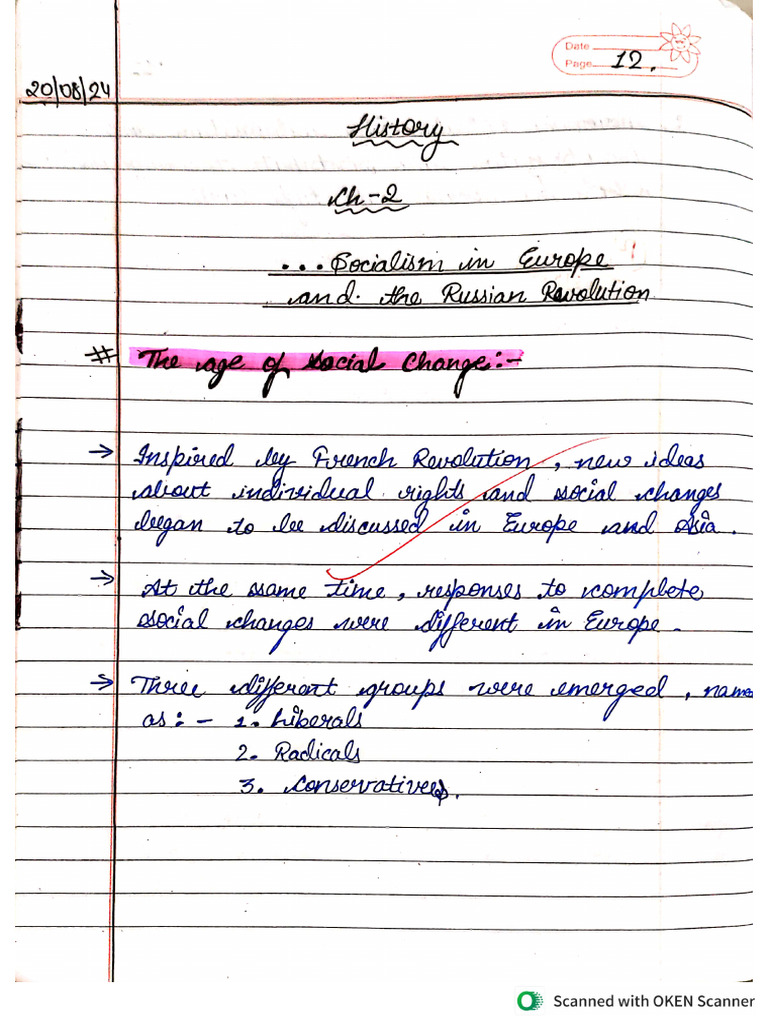 Date
Page 12.
20/08/24
History
Ch-2
... Socialism in Europe
and the Russian Revolution
# The age of social change:-
→ Inspired by French Revolution, new ideas
about individual rights and social changes
began to be discussed in Europe and Asia.
→ At the same time, responses to complete
social changes were different in Europe.
→ Three different groups were emerged, name
as:- 1. Liberals
2. Radicals
3. Conservatives.
Scanned with OKEN Scanner